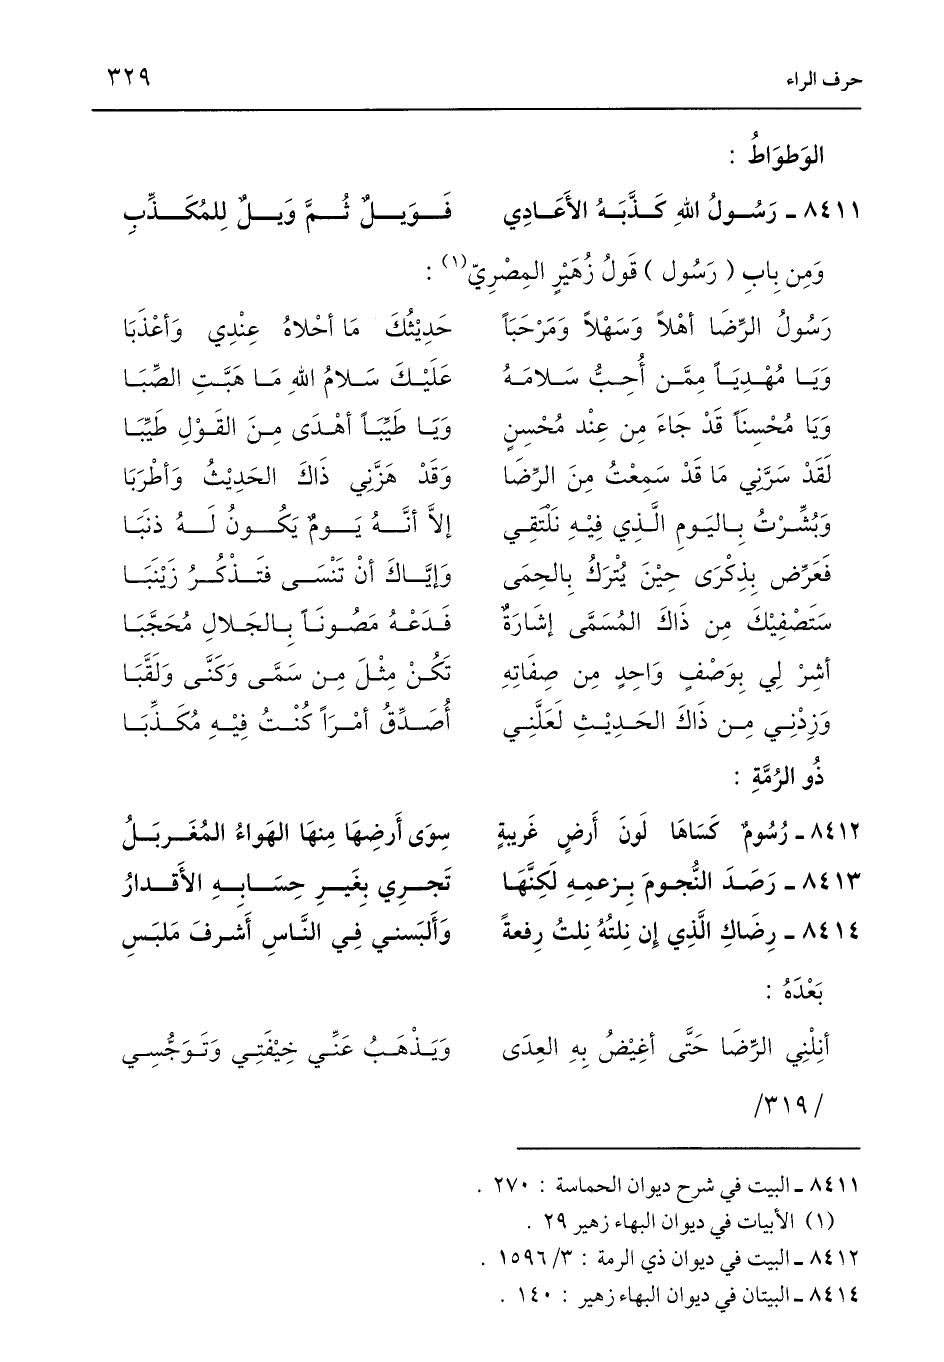 حرف الراء ٣٢٩
الوَطوَاطُ :
٨٤١١ ـ رَسُولُ اللهِ كَذَّبَهُ الأَعَادِي فَوَيلٌ ثُمَّ وَيلٌ لِلمُكَذِّبِ
وَمِن بِابِ ( رَسُول ) قَولُ زُهَيْرِ المِصْرِيّ(١) :
رَسُولُ الرِّضَا أهْلاً وَسَهْلاً وَمَرْحَبَاً حَدِيْثُكَ مَا أحْلاهُ عِنْدِي وَأعْذَبَا
وَيَا مُهْدِيَاً مِمَّن أُحِبُّ سَلامَهُ عَلَيْكَ سَلامُ اللهِ مَا هَبَّتِ الصِّبَا
وَيَا مُحْسِنَاً قَدْ جَاءَ مِن عِنْد مُحْسِنٍ وَيَا طَيِّبَاً أهْدَى مِنَ القَوْلِ طَيِّبَا
لَقَدْ سَرَّنِي مَا قَدْ سَمِعْتُ مِنَ الرِّضَا وَقَدْ هَزَّنِي ذَاكَ الحَدِيْثُ وَأطْرَبَا
وَبُشِّرْتُ بِاليَومِ الَّذِي فِيْهِ نَلْتَقِي إلاَّ أنَّهُ يَومٌ يَكُونُ لَهُ ذنبَا
فَعَرِّض بِذِكْرَى حِيْنَ يُتْرَكُ بِالحِمَى وَإيَّاكَ أنْ تَنْسَى فَتَذْكُرُ زَيْنَبَا
سَتَصْفِيْكَ مِن ذَاكَ المُسَمَّى إشَارَةٌ فَدَعْهُ مَصُونَاً بِالجَلالِ مُحَجَّبَا
أشِرْ لِي بِوَصْفٍ وَاحِدٍ مِن صِفَاتِهِ تَكُنْ مِثْلَ مِن سَمَّى وَكَنَّى وَلَقَّبَا
وَزِدْنِي مِن ذَاكَ الحَدِيْثِ لَعَلَّنِي أُصَدِّقُ أمْرَاً كُنْتُ فِيْهِ مُكَذِّبَا
ذُو الرُمَّةِ :
٨٤١٢ ـ رُسُومٌ كَسَاهَا لَونَ أَرضٍ غَرِيبةٍ سِوَى أَرضِهَا مِنهَا الهَواءُ المُغَربَلُ
٨٤١٣ ـ رَصَدَ النُّجومَ بِزعمِهِ لَكِنَّهَا تَجرِي بِغَيرِ حِسَابِهِ الأَقدارُ
٨٤١٤ ـ رِضَاكِ الَّذِي إِن نِلتُهُ نِلتُ رِفعةً وَأَلبَسني فِي النَّاسِ أَشرفَ مَلبَسِ
بَعْدَهُ :
أنِلْنِي الرِّضَا حَتَّى أغِيْضُ بِهِ العِدَى وَيَذْهَبُ عَنِّي خِيْفَتِي وَتَوَجُّسِي
/٣١٩/
٨٤١١ ـ البيت في شرح ديوان الحماسة : ٢٧٠ .
(١) الأبيات في ديوان البهاء زهير ٢٩ .
٨٤١٢ ـ البيت في ديوان ذي الرمة : ٣/ ١٥٩٦ .
٨٤١٤ ـ البيتان في ديوان البهاء زهير : ١٤٠ .